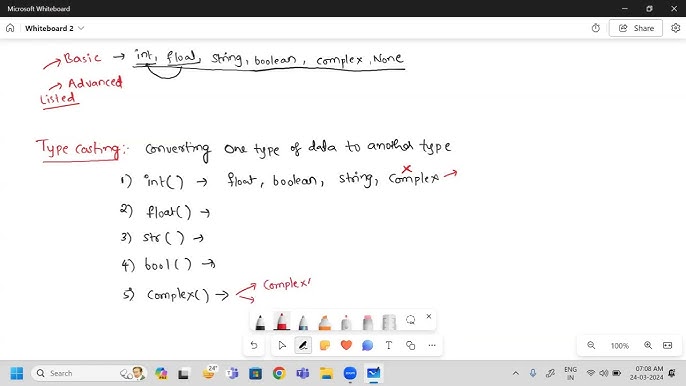 Microsoft Whiteboard
Whiteboard 2
Share
Basic → int, float, string, boolean, complex, None
→ Advanced
Listed
Type casting:- Converting one type of data to another type
1) int() → float, boolean, string, complex →
x
2) float() →
3) str() →
4) bool() →
5) complex() → complex(
100%
Search
24°
ENG
IN
07:08 AM
24-03-2024